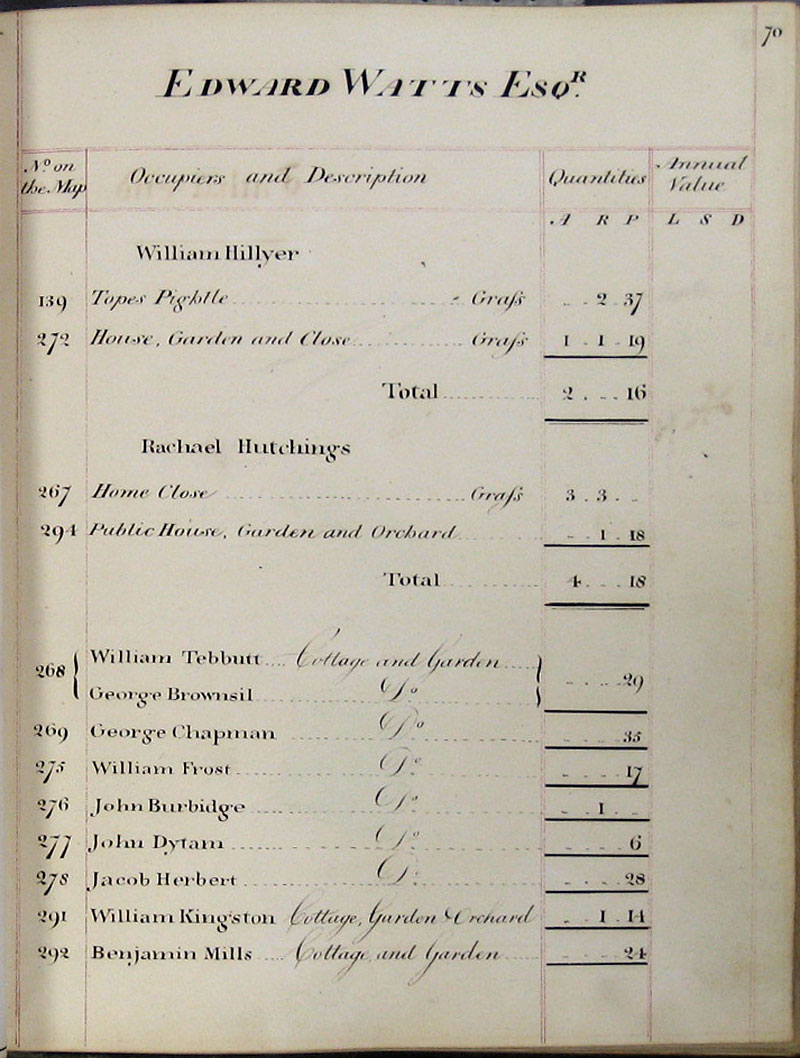 70
EDWARD WATTS ESQR.
No. on the Map Occupiers and Description Quantities Annual Value
A R P L S D
William Hillyer
139 Topes Pightle Grass 2 37
272 House, Garden and Close Grass 1 1 19
Total 2 16
Rachael Hutchings
267 Home Close Grass 3 3
294 Public House, Garden and Orchard 1 18
Total 4 18
268 William Tebbutt Cottage and Garden
George Brownsil Do 29
269 George Chapman Do 35
275 William Frost Do 17
276 John Burbidge Do 1
277 John Dytam Do 6
278 Jacob Herbert Do 28
291 William Kingston Cottage, Garden & Orchard 1 14
292 Benjamin Mills Cottage and Garden 24